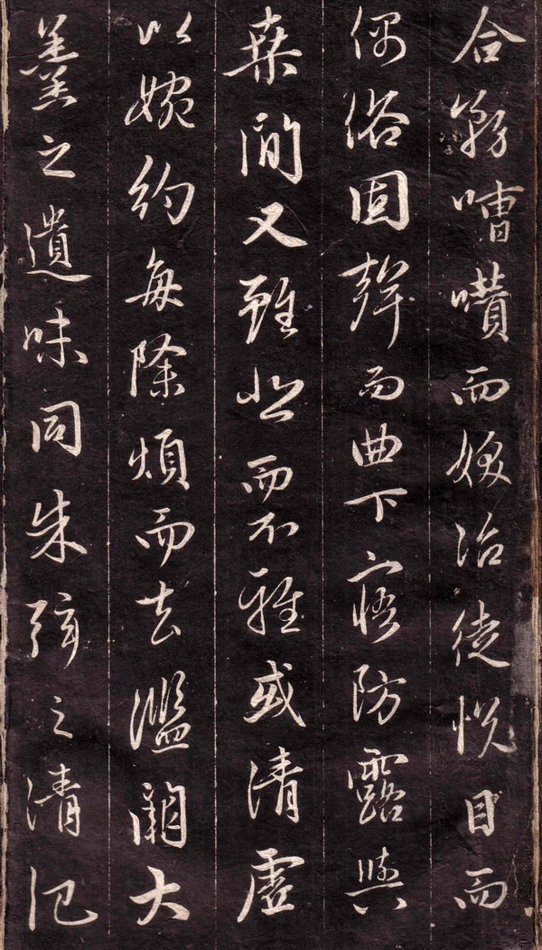 合務嘈囋而妖冶徒悅目而
偶俗固聲而曲下寤防露與
桒間又雖悲而不雅或清虛
以婉約每除煩而去濫闕大
羹之遺味同朱弦之清氾